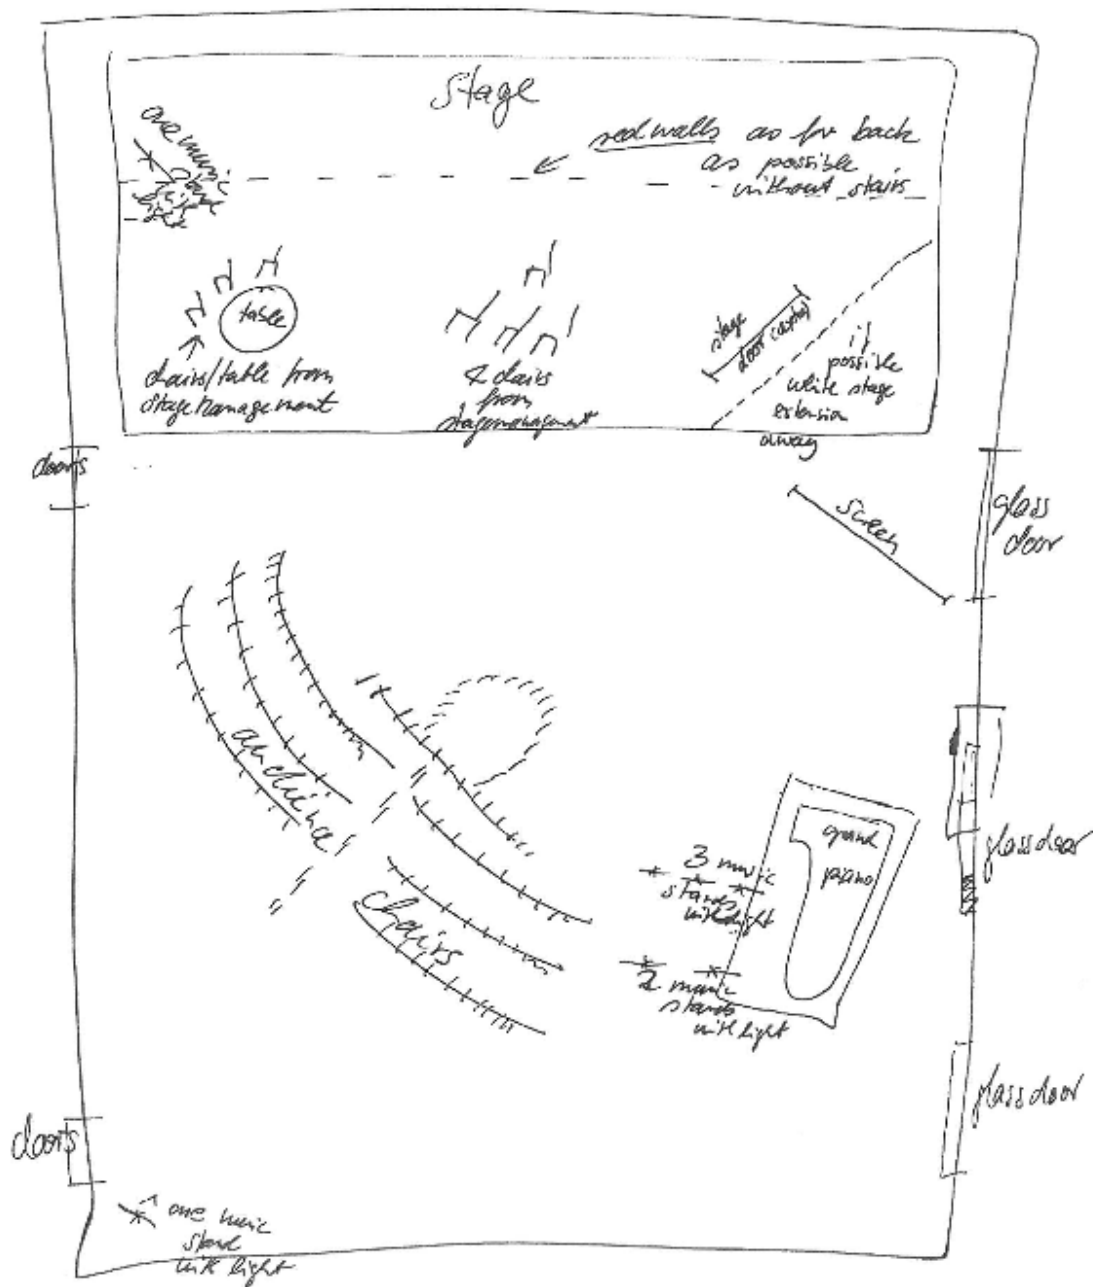 stage
one music
red walls as far back
as possible
without stairs
table
chairs/table from
stage management
4 chairs
from
stagemanagement
stage
door
if
possible
white stage
extension
away
doors
screen
glass
door
audience
chairs
3 music
stands
with light
grand
piano
glassdoor
2 music
stands
with light
glassdoor
doors
one music
stand
with light